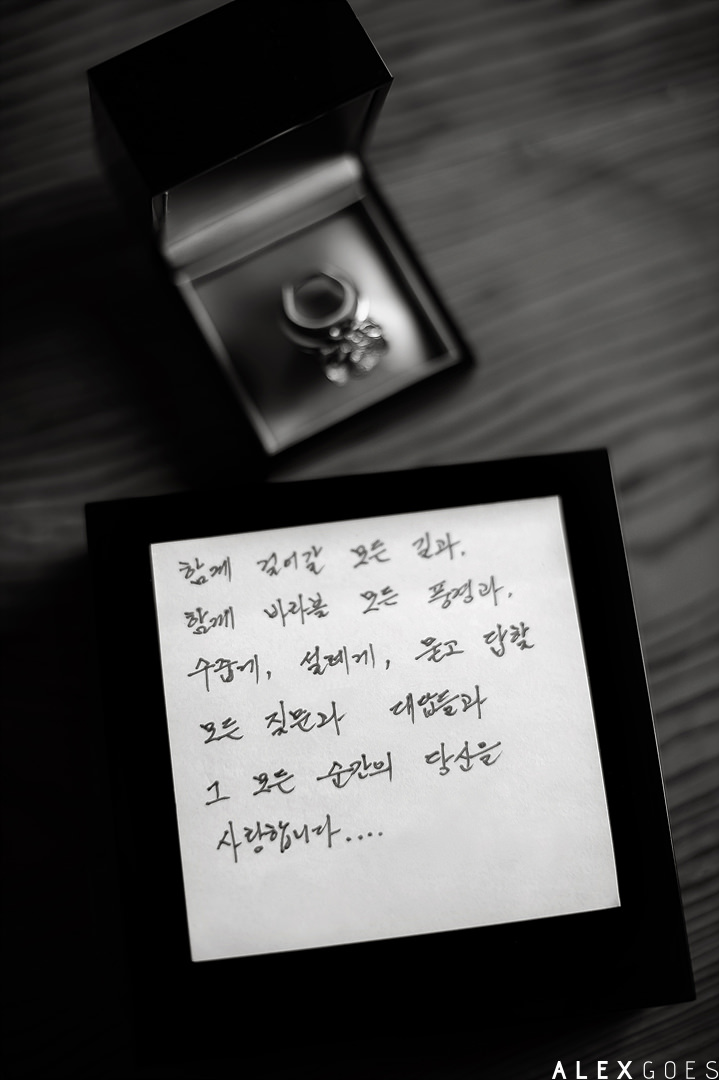 함께 걸어갈 모든 길과.
함께 바라볼 모든 풍경과.
수줍게, 설레게, 묻고 답할
모든 질문과 대답들과
그 모든 순간의 당신을
사랑합니다....
ALEXGOES